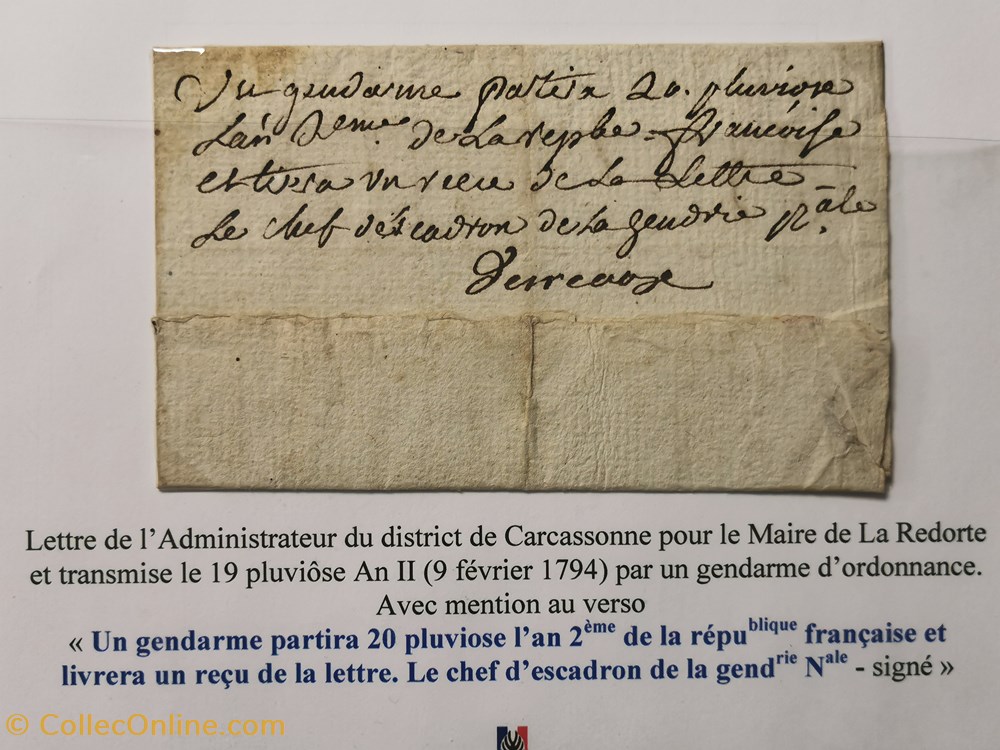 Un gendarme partira 20. pluviose
Lan 2eme de La repbe française
et tirera un recu de La Lettre
Le chef d'escadron de la gendrie nale
Lettre de l’Administrateur du district de Carcassonne pour le Maire de La Redorte
et transmise le 19 pluviôse An II (9 février 1794) par un gendarme d’ordonnance.
Avec mention au verso
« Un gendarme partira 20 pluviose l’an 2ème de la république française et
livrera un reçu de la lettre. Le chef d’escadron de la gendrie Nale - signé »
© CollecOnline.com